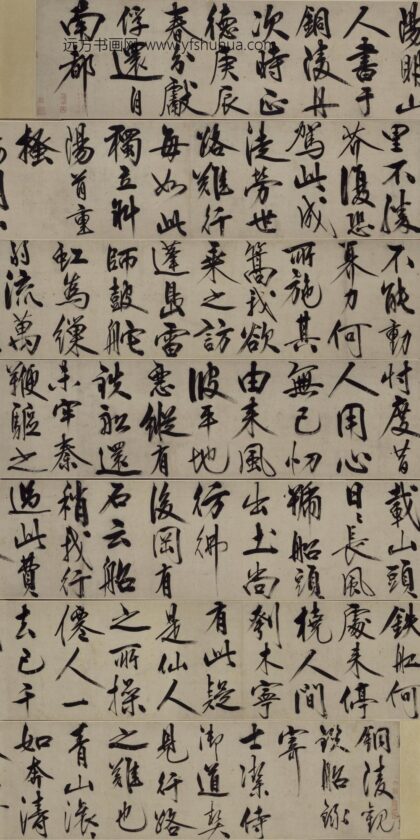 远方书画网 www.yfshuhua.com
陽明山
人書于
銅陵舟
次時正
德庚辰
春分獻
俘還自
南都
里不勝
芥復恐
駕此成
徒勞世
路難行
每如此
獨立斜
陽首重
搔
不能動
奡力何
所施其
篙我欲
乘之訪
蓬島雷
師鼓舵
虹為繅
弱流萬
忖度昔
人用心
無已忉
由來風
波平地
惡縱有
鐵船還
未牢秦
鞭驅之
載山頭
日々長風
號船頭
出土尚
彷彿
後岡有
石云船
稍我行
過此費
鐵船何
處來停
橈人間
刳木寧
有此疑
是仙人
之所操
僊人一
去已千
銅陵觀
鐵船錄
寄
士潔侍
御道契
見行路
之難也
青山滾々
如奔濤